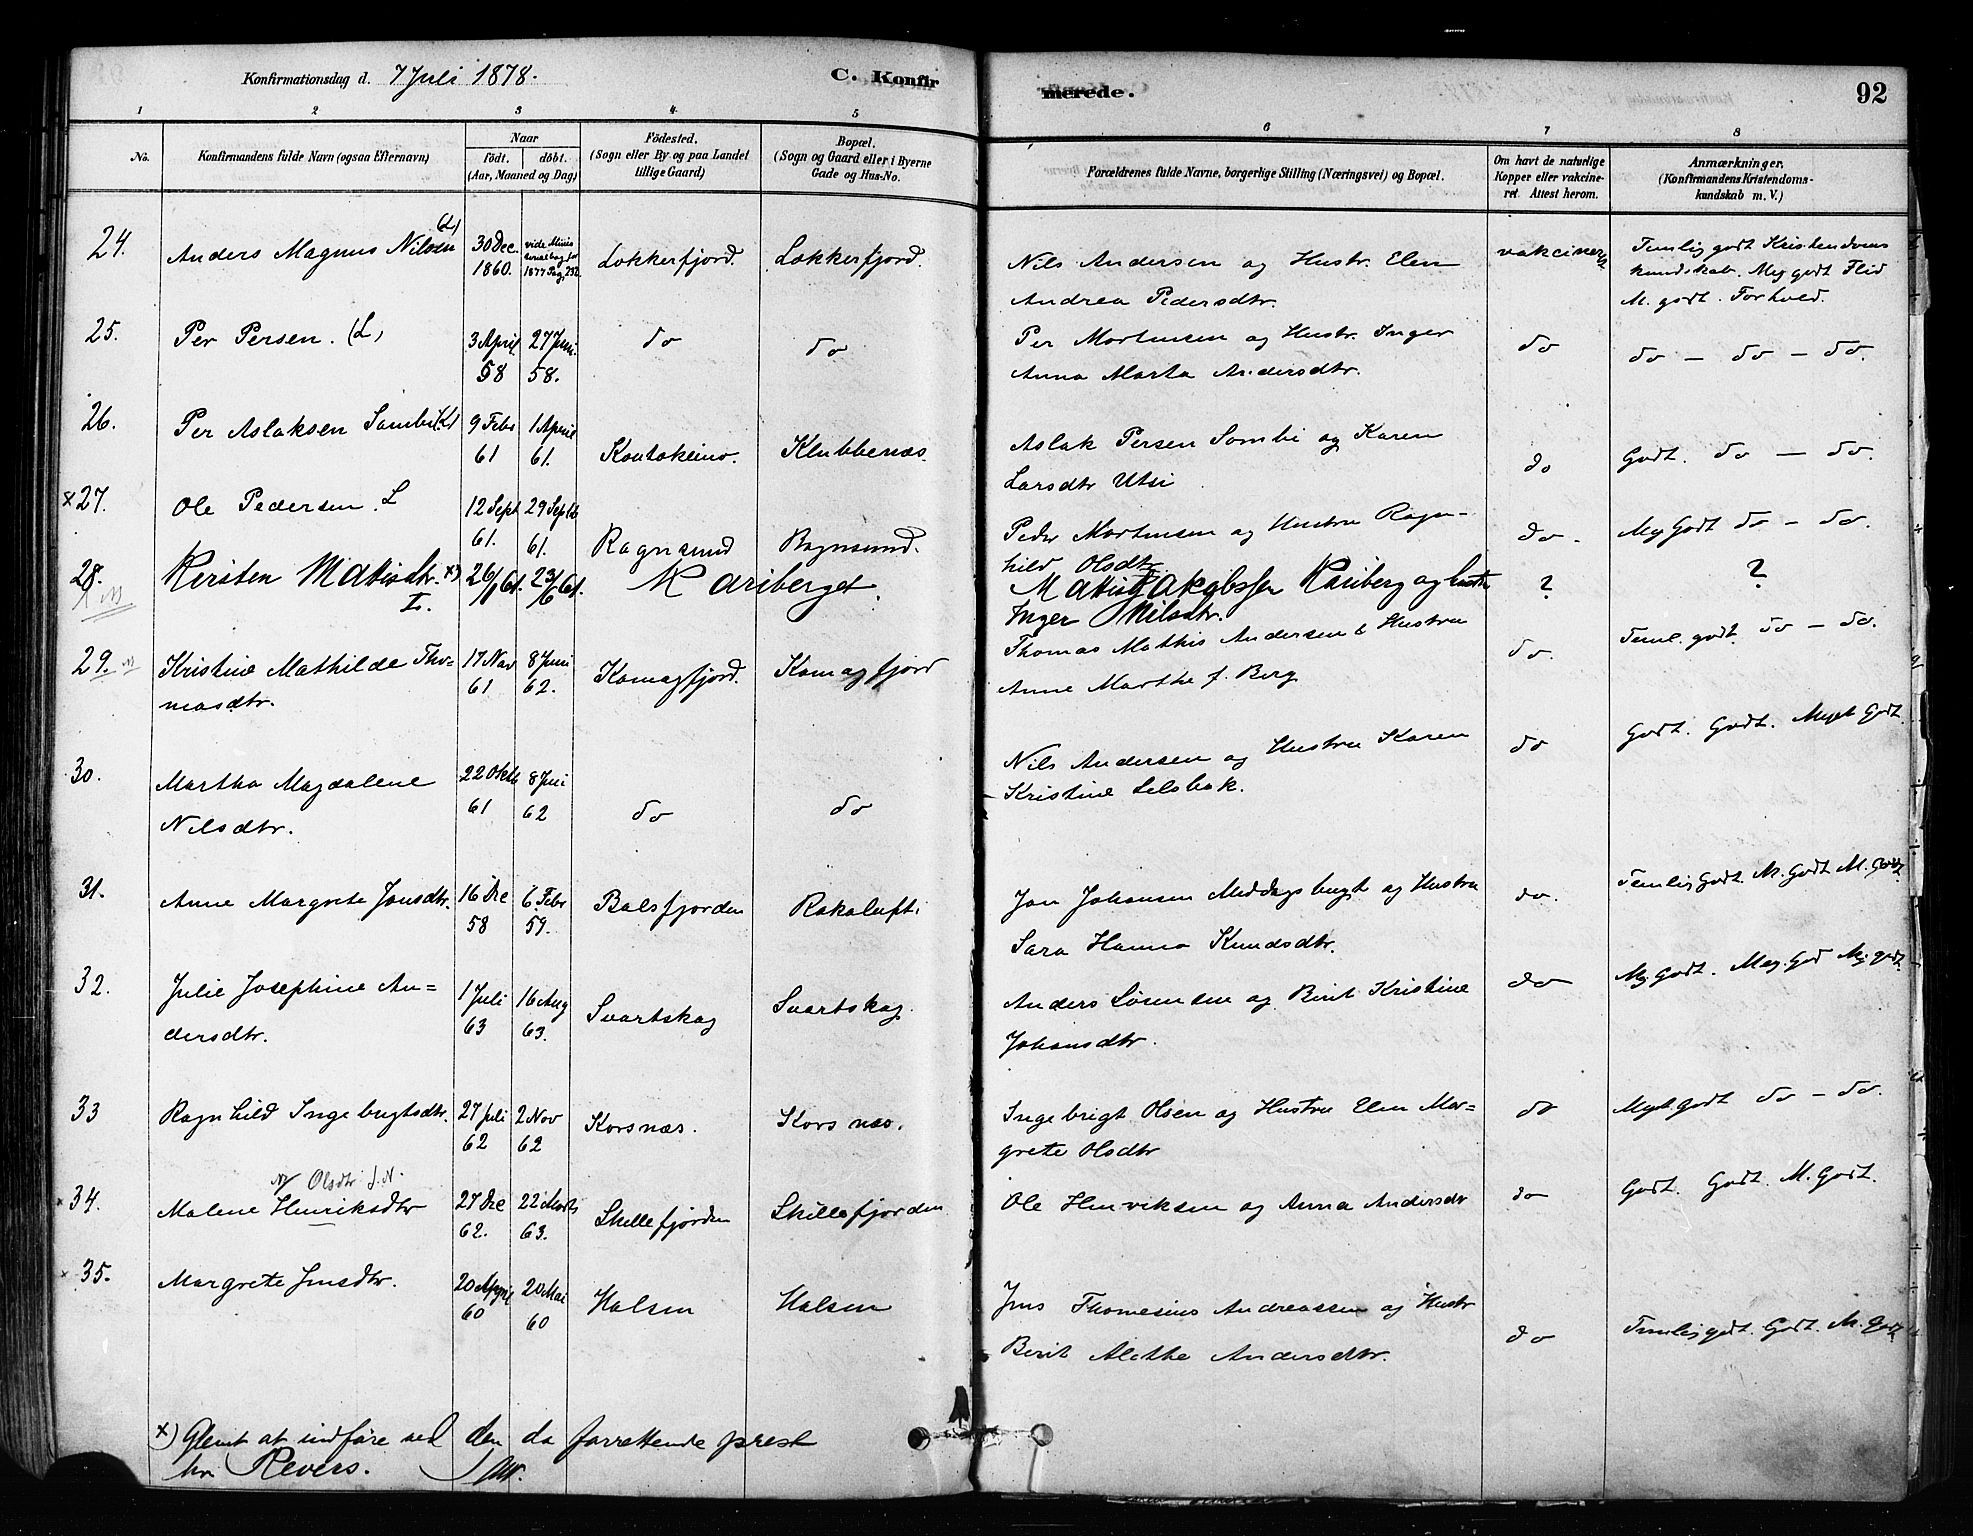 Konfirmationsdag d. 7 Juli 1878.
C. Konfirmerede.
92
1 2 3 4 5 6 7 8
No.
Konfirmandens fulde Navn (ogsaa Efternavn)
Naar
födt. döbt.
(Aar, Maaned og Dag)
Födested.
(Sogn eller By og paa Landet
tillige Gaard)
Bopæl.
(Sogn og Gaard eller i Byerne
Gade og Hus-No.
Forældrenes fulde Navne, borgerlige Stilling (Næringsvei) og Bopæl.
Om havt de naturlige
Kopper eller vakcine-
ret. Attest herom.
Anmærkninger,
(Konfirmandens Kristendoms-
kundskab m. V.)
24. Anders Magnus Nilsen (L)
30 Dec. 1860.
vide Ministerialbog for 1877 Pag. 232
Lokkerfjord. Lokkerfjord.
Nils Andersen og Hustr. Elen
Andrea Pedersdtr.
vakcineret
Temlig godt Kristendoms
kundskab. Meg godt Flid
M. godt. Forhold.
25. Per Persen. (L)
3 April 58
27 Juni. 58.
do do
Per Mortensen og Hustr. Inger
Anna Marta Andersdtr.
do
do - do - do.
26. Per Aslaksen Sombi (K)
9 Febr 61
1 April 61.
Koutokeino. Klubbenæs.
Aslak Persen Sombi og Karen
Larsdtr Utsi
do
Godt. do - do.
x 27. Ole Pedersen. L
12 Sept 61.
29 Septb 61.
Ragnsund Ragnsund.
Peder Mortensen og Hustru Ragn-
hild Olsdtr.
do.
Meg Godt do - do.
28. Kersten Matisdtr. x)
L.
26/1 61. 23/6 61.
Kariberget.
Matis Jakobssen Kariberg og hustru
Inger Nilsdtr.
? ?
29. Kristine Mathilde Tho-
masdtr.
17 Nov 61
8 Juni 62.
Komagfjord. Komagfjord
Thomas Mathis Andersen & Hustru
Anne Marthe f. Berg
do.
Teml. godt. do - do.
30. Martha Magdalene
Nilsdtr.
22 Oktb 61
8 Juni 62
do do
Nils Andersen og Hustru Karen
Kristine Lelsbak.
do
Godt. Godt. Meget Godt.
31. Anne Margrete Jonsdtr.
16 Dec 58
6 Febr 59.
Balsfjorden Rakaluft.
Jon Johansen Meddagsbugt og Hustru
Sara Hanna Knudsdtr.
do.
Temlig Godt. M. Godt M. Godt.
32. Julie Josephine An-
dersdtr.
1 Juli 63
16 Aug 63.
Svartskog Svartskog.
Anders Sørensen og Berit Kristine
Johansdtr.
do
Mg. Godt. Meg. God Mg. godt.
33 Ragnhild Ingebrigtsdtr.
27 Juli 62
2 Nov 62
Korsnæs. Korsnæs.
Ingebrigt Olsen og Hustru Elen Mar-
grete Olsdtr
do
Meget godt do - do.
Olsdtr
34. Malene Henriksdtr
27 Dec 62.
22 Marts 63.
Skillefjorden Skillefjorden
Ole Henriksen og Anna Andersdtr
do
Godt. Godt. M. Godt.
35. Margrete Jensdtr.
20 April 60
20 Mai 60
Halsen Halsen
Jens Thomesius Andreassen og Hustr
Berit Alethe Andersdtr.
do
Temlig godt. Godt. M. Godt
x) Glemt at indføre ved den da forrettende prest
hr. Revers.